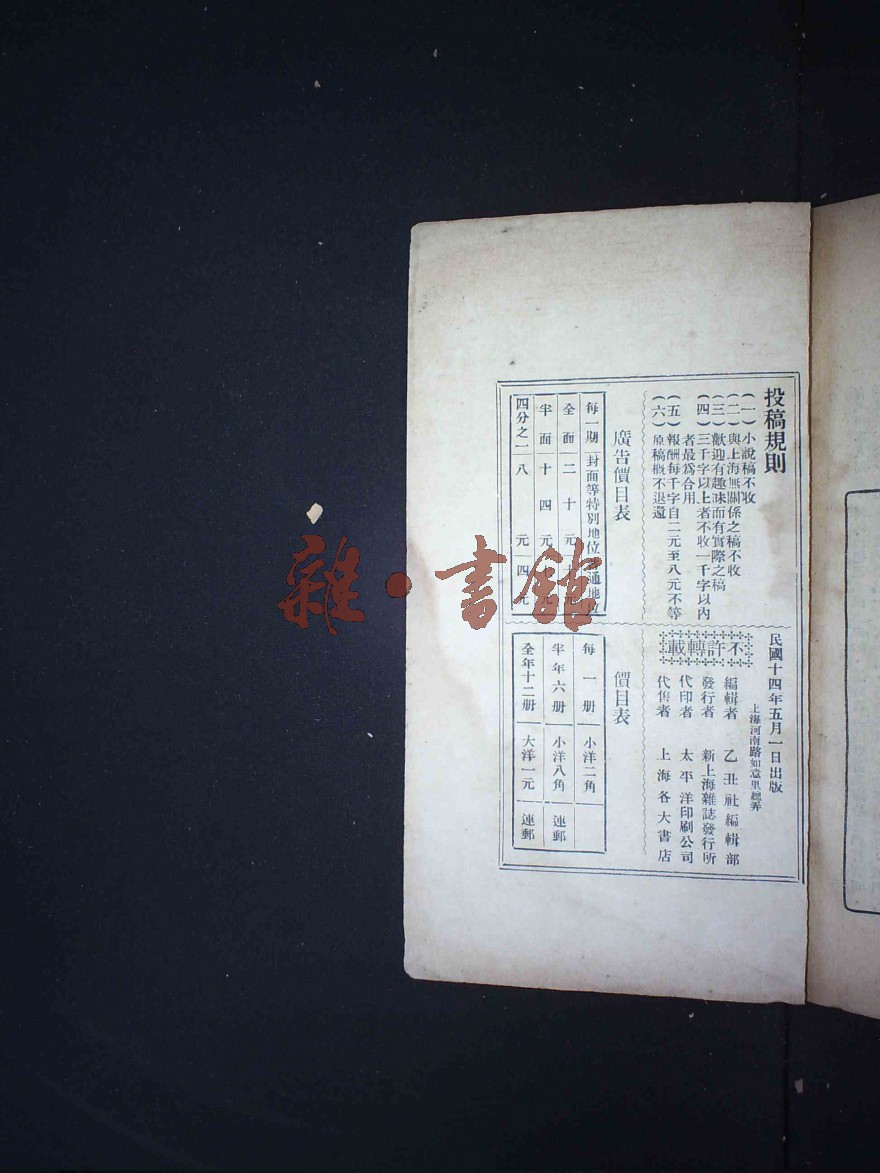 投稿規則
(一)小說稿不收
(二)與上海無關係之稿不收
(三)歡迎有趣味而有實際之稿
(四)三千字以上者不收一千字以內
者最爲合用
(五)報酬每千字自二元至八元不等
(六)原稿概不退還
廣告價目表
每一期 封面等特別地位 通地位
全面 二十元
半面 十四元
四分之一 八元 四元
民國十四年五月一日出版
上海河南路如意里
編輯者 乙丑社編輯部
發行者 新上海雜誌發行所
代印者 太平洋印刷公司
代售者 上海各大書店
不許轉載
價目表
每一册 小洋二角
半年六册 小洋八角 連郵
全年十二册 大洋一元 連郵
雜·書館